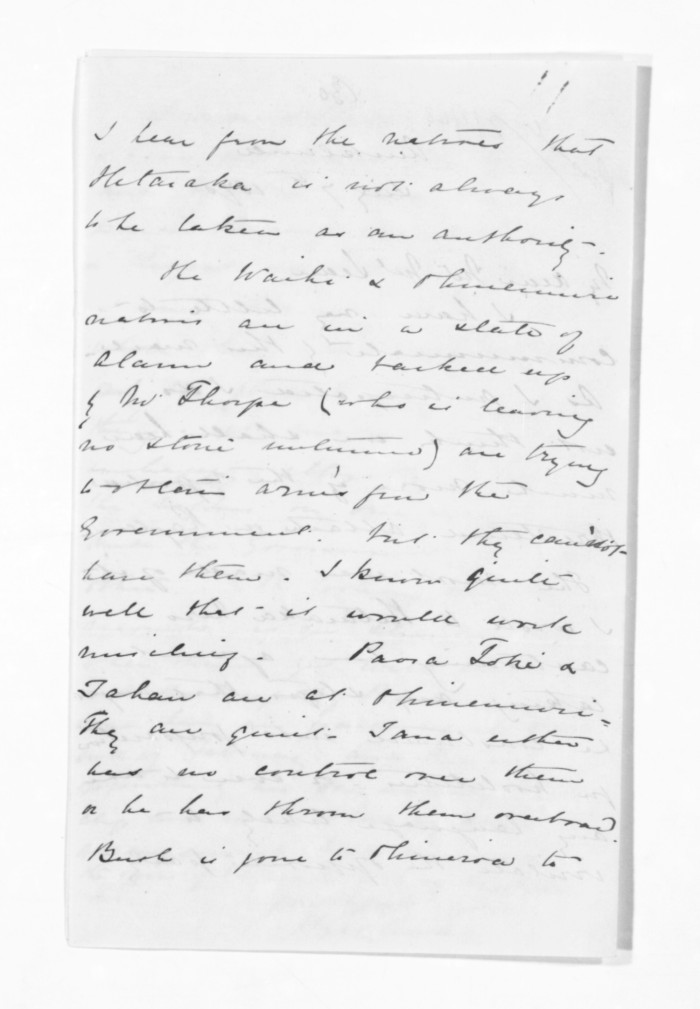 I hear from the natives that
Hetaraka is not always
to be taken as an authority -
The Waihi & Ohinemuri
natives are in a state of
alarm and backed up
by Mr Thorpe (who is leaving
no stone unturned) are trying
to obtain arms from the
Government. but they cannot
have them. I know quite
well that it would work
mischief. Paora Toki &
are at Ohinemuri -
They are quiet - Tana either
has no control over them
or he has thrown them overboard.
Bush is gone to Ohineroa to